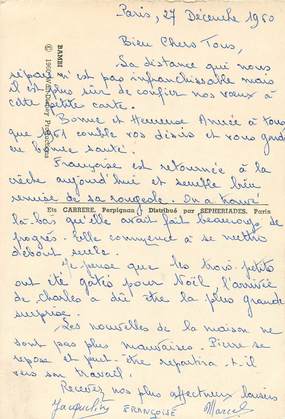 Paris, 27 Décembre 1960
Bien Chers Tous,
La distance qui nous
sépare n'est pas infranchissable mais
il est plus sûr de confier nos vœux à
cette petite carte.
Bonne et Heureuse Année à tous
que 1961 comble vos désirs et vous garde
en bonne santé.
Françoise est retournée à la
crèche aujourd'hui et semble bien
remise de sa rougeole. On a trouvé
là-bas qu'elle avait fait beaucoup de
progrès. Elle commence à se mettre
debout seule.
Je pense que les trois petits
ont été gâtés pour Noël. L'arrivée
de Charles a dû être la plus grande
surprise.
Les nouvelles de la maison ne
sont pas plus mauvaises. Pierre se
repose et peut-être repartira-t-il
vers son travail.
Recevez nos plus affectueux baisers
Jacqueline FRANÇOISE Marcel
BAMBI
© 1960 Walt Disney Productions
Ets CARRERE, Perpignan Distribué par SEPHERIADES, Paris